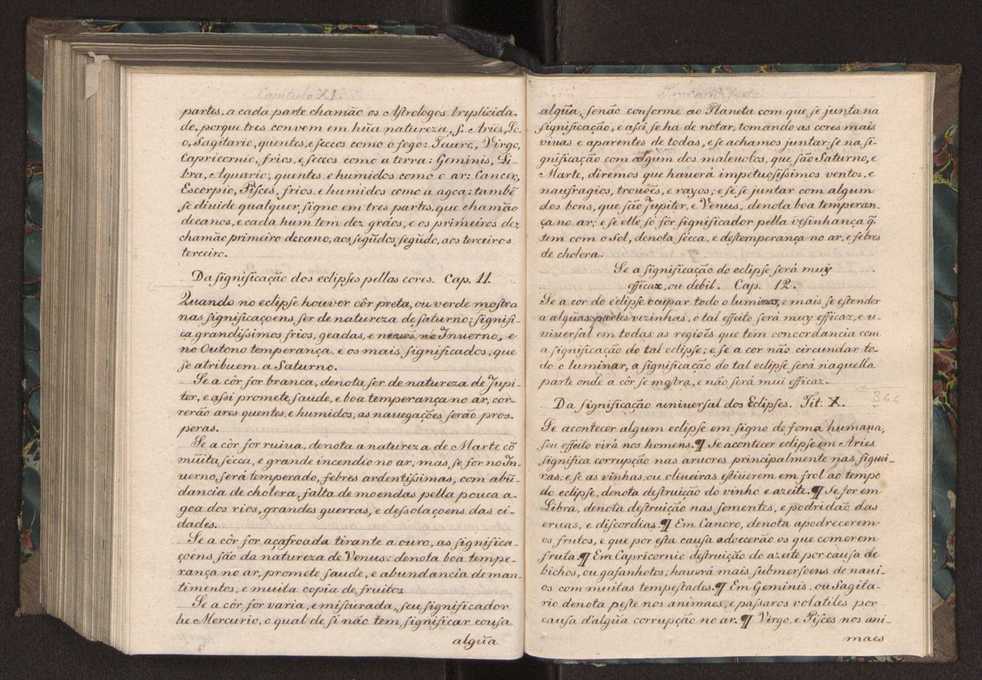 Capitulo XI.
partes. a cada parte chamão os Astrologos triplicida-
de, porque tres convem em hũa natureza, ſ. Aries, Le-
o, Sagitario, quentes, e seccos como o fogo: Tauro, Virgo,
Capricornio, frios, e seccos como a terra: Geminis, Li-
bra, Aquario, quentes, e humidos como o ar: Cancer,
Escorpio, Piſces, frios, e humidos como a agoa: tambẽ
ſe diuide qualquer ſigno em tres partes, que chamão
decanos, e cada hum tem dez gráos, e os primeiros dez
chamão primeiro decano, aos ſegũdos, ſegũdo, aos terceiros
terceiro.
Da ſignificação dos eclipſes pellas cores. Cap. 11.
Quando no eclipſe houver côr preta, ou verde moſtra
nas ſignificaçoens, ſer de natureza de ſaturno: ſignifi-
ca grandíſsimos frios, geadas, e neues no Inuerno, e
no Outono temperança, e os mais ſignificados, que
ſe atribuem a Saturno.
Se a côr for branca, denota ſer de natureza de Jupi-
ter, e aſsi promete ſaude, e boa temperança no ar, cor-
rerão ares quentes, e humidos, as nauegações ſerão pros-
peras.
Se a côr for ruiua, denota a natureza de Marte cõ
mũita ſecca, e grande incendio no ar; mas, ſe for no In-
uerno, ſerá temperado, febres ardentiſsimas, com abũ-
dancia de cholera, falta de moendas pella pouca a-
goa dos rios, grandes guerras, e deſsolaçoens das ci-
dades.
Se a côr for açafroada tirante a ouro, as ſignifica-
çoens ſão da natureza de Venus: denota boa tempe-
rança no ar, promete ſaude, e abundancia de man-
timentos, e muita copia de fruitos.
Se a côr for varia, e miſturada, ſeu ſignificador
he Mercurio, o qual de ſi não tem ſignificar couſa
algũa
algũa, ſenão conforme ao Planeta com que ſe junta na
ſignificação, e aſsi ſe ha de notar, tomando as cores mais
viuas e aparentes de todas, e ſe achamos juntar ſe na ſi-
gnificação com algum dos maleuolos, que ſão Saturno, e
Marte, diremos que hauerá impetuoſiſsimos ventos, e
naufragios, trouões, e rayos; e ſe ſe juntar com algum
dos bons, que ſão Jupiter, e Venus, denota boa temperan-
ça no ar; e ſe elle ſó for ſignificador pella veſinhança q̃
tem com o Sol, denota ſecca, e deſtemperança no ar, e febres
de cholera.
Se a ſignificação do eclipſe ſerá muy
efficaz, ou debil. Cap. 12.
Se a cor do eclipſe ocupar todo o luminar, e mais ſe eſtender
a algũas partes vezinhas, o tal effeito ſerá muy efficaz, e u-
niuerſal em todas as regiões que tem concordancia com
a ſignificação do tal eclipſe; e ſe a cor não circundar to-
do o luminar, a ſignificação do tal eclipſe ſerá naquella
parte onde a côr ſe moſtra, e não ſerá mui efficaz.
Da ſignificação uniuerſal dos Eclipſes. Tit. X.
Se acontecer algum eclipſe em ſigno de forma humana,
ſeu effeito virá nos homens.¶ Se acontecer eclipſe em Aries
ſignifica corrupção nas aruores principalmente nas figuei-
ras; e ſe as vinhas, ou oliueiras eſtiuerem em frol ao tempo
do eclipſe, denota deſtruição do vinho e azeite.¶ Se for em
Libra, denota deſtruição nas ſementes, e podridão das
eruas, e diſcordias.¶ Em Cancro, denota apodrecerem-
os frutos, e que por eſta cauſa adoecerão os que comerem
fruita.¶ Em Capricornio deſtruição do azeite por cauſa de
bichos, ou gafanhotos; hauerá mais ſubmerſoens de naui-
os com muitas tempeſtades.¶ Em Geminis, ou Sagita-
rio denota peſte nos animaes, e paſsaros volatiles por
cauſa d'algũa corrupção no ar.¶ Virgo, e Piſces nos ani-
maes